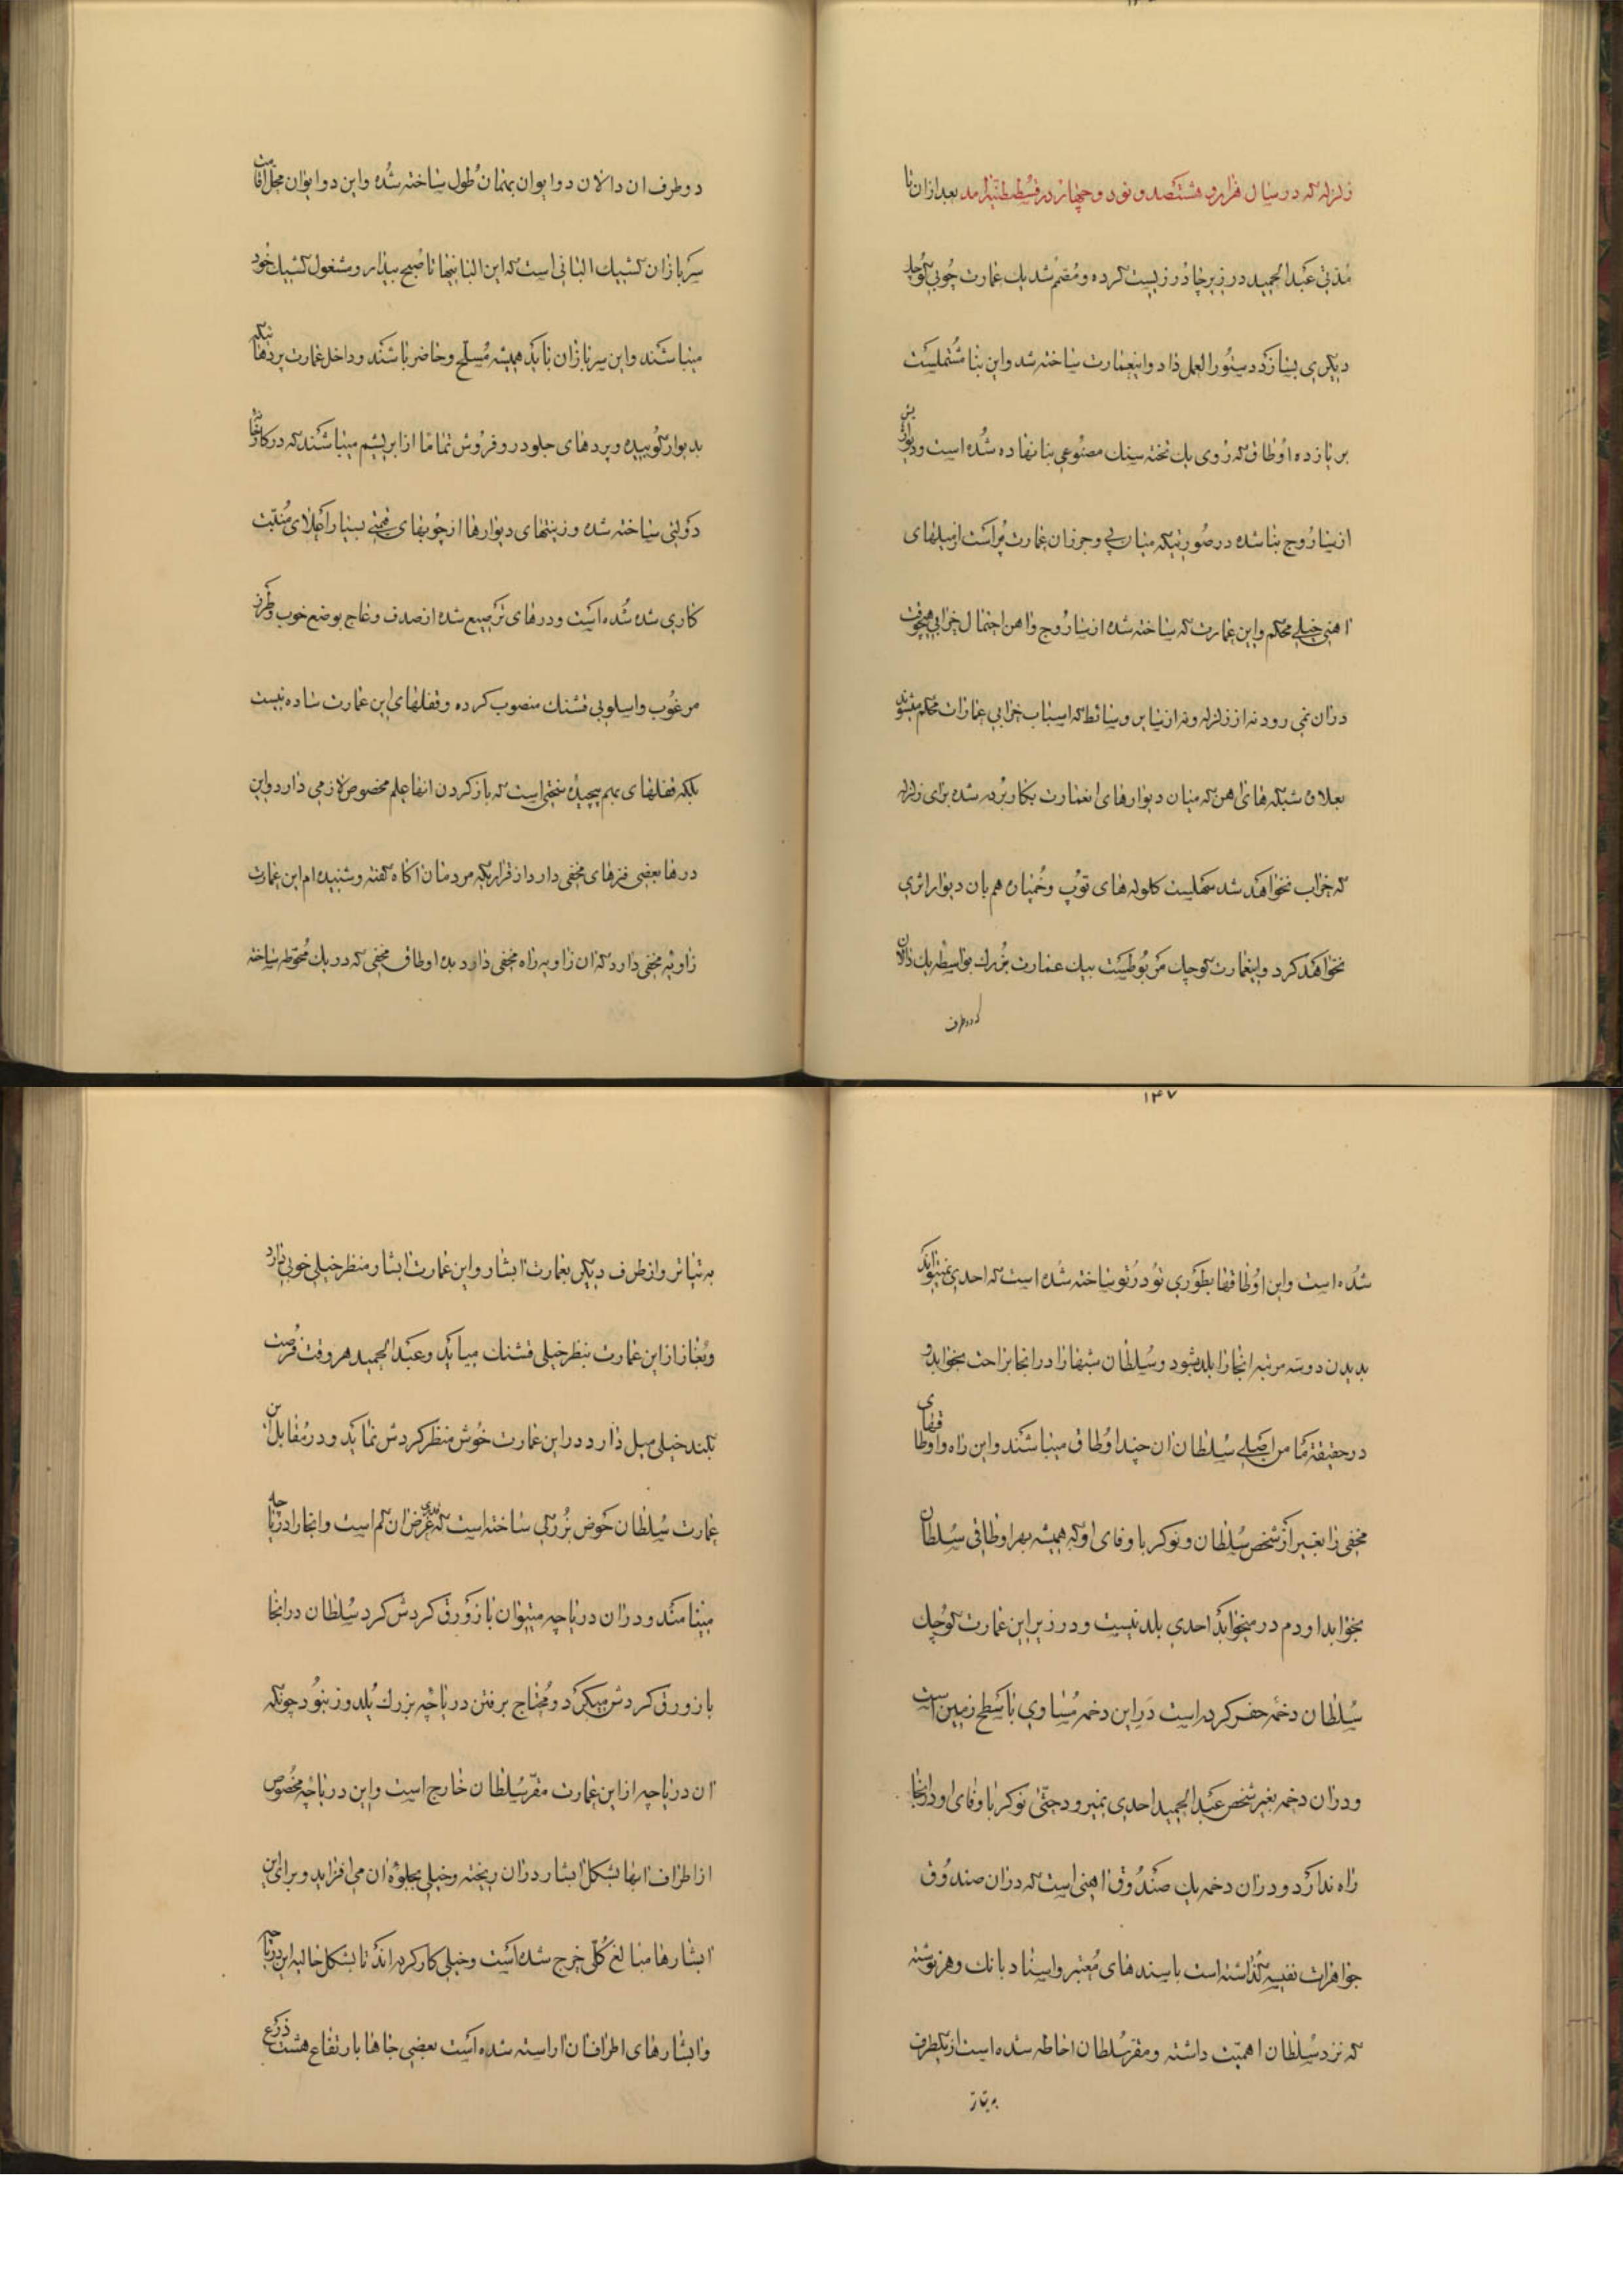 زلزلهٔ که در سال هزار و هشتصد و نود و چهار در قسطنطنیه امد بعد از ان تا
مدتی عبدالحمید در زیر چادر زیست کرده و مصمم شد یک عمارت چوبی کوچک
دیگری بسازد دستورالعمل داد و اینعمارت ساخته شد و این بنا مشتملست
بر یازده اوطاق که روی یک تخته سنک مصنوعی بنا نهاده شده است و دیوارش
از ساروج بنا شده در صورتیکه میان پی و جرزان عمارت پر است از میلهای
اهنی خیلی محکم و این عمارت که ساخته شده از ساروج و اهن احتمال خرابی هیچوقت
در ان نمی رود نه از زلزله و نه از سایر وسائط که اسباب خرابی عمارات محکم میشوند
بعلاوه شبکه های اهن که میان دیوارهای انعمارت بکار برده شده برای زلزله
که خراب نخواهد شد سهلست کلوله های توپ و خمپاره هم بان دیوار اثری
نخواهد کرد و اینعمارت کوچک مربوطست بیک عمارت بزرک بواسطه یک دالان
که دو طرف
دو طرف ان دالان دو ایوان بهمان طول ساخته شده و این دو ایوان محل اقامت
سربازان کشیک البانی است که این البانیها تا صبح بیدار و مشغول کشیک خود
میباشند و این سربازان باید همیشه مسلح و حاضر باشند و داخل عمارت پردهائیکه
بدیوار کوبیده و پردهای جلو در و فروش تماما از ابریشم میباشند که در کارخانها
دولتی ساخته شده و زینتهای دیوارها از چوبهای قیمتی بسیار اعلای منبت
کاری شده شده است و درهای ترصیع شده از صدف و عاج بوضع خوب و طرز
مرغوب و اسلوبی قشنک منصوب کرده و قفلهای این عمارت ساده نیست
بلکه قفلهای بهم پیچیده سختی است که باز کردن انها علم مخصوص لازمی دارد و این
درها بعضی فنرهای مخفی دارد از قراریکه مردمان اکاه کفته و شنیده ام این عمارت
زاویه مخفی دارد که ان زاویه راه مخفی دارد بده اوطاق مخفی که در یک محوطه ساخته
۱۳۷
شده است و این اوطاقها بطوری تو در تو ساخته شده است که احدی نمیتواند
بدیدن دو سه مرتبه انجا را بلد بشود و سلطان شبها را در انجا براحت بخوابد و
در حقیقة مامن اصلی سلطان ان چند اوطاق میباشند و این راه و اوطاقهای
مخفی را بغیر از شخص سلطان و نوکر با وفای او که همیشه بهر اوطاقی سلطان
بخوابد او دم در میخوابد احدی بلد نیست و در زیر این عمارت کوچک
سلطان دخمه حفر کرده است در این دخمه مساوی با سطح زمین است
و در ان دخمه بغیر شخص عبدالحمید احدی نمیرود حتی نوکر با وفای او در انجا
راه ندارد و در ان دخمه یک صندوق اهنی است که در ان صندوق
جواهرات نفیسه کذاشته است با سندهای معتبر و اسناد بانک و هر نوشته
که نزد سلطان اهمیت داشته و مقر سلطان احاطه شده است از یکطرف
به تیاتر
به تیاتر و از طرف دیکر بعمارت ابشار و این عمارت ابشار منظر خیلی خوبی دارد
و بغاز از این عمارت بنظر خیلی قشنک میاید و عبدالحمید هر وقت فرصت
بکند خیلی میل دارد در این عمارت خوش منظر کردش نماید و در مقابل این
عمارت سلطان حوض بزرکی ساخته است که قدری عرض ان کم است و انجا را دریاچه
مینامند و در ان دریاچه میتوان با زورق کردش کرد سلطان در انجا
با زورق کردش میکرد و محتاج برفتن دریاچه بزرک یلدوز نبود چونکه
ان دریاچه از این عمارت مقر سلطان خارج است و این دریاچه مخصوص
از اطراف ابها بشکل ابشار در ان ریخته و خیلی بجلوه ان می افزاید و برای این
ابشارها مبالغ کلی خرج شده است و خیلی کار کرده اند تا بشکل حالیه این دریاچه
و ابشارهای اطراف ان اراسته شده است بعضی جاها بارتفاع هشت ذرع